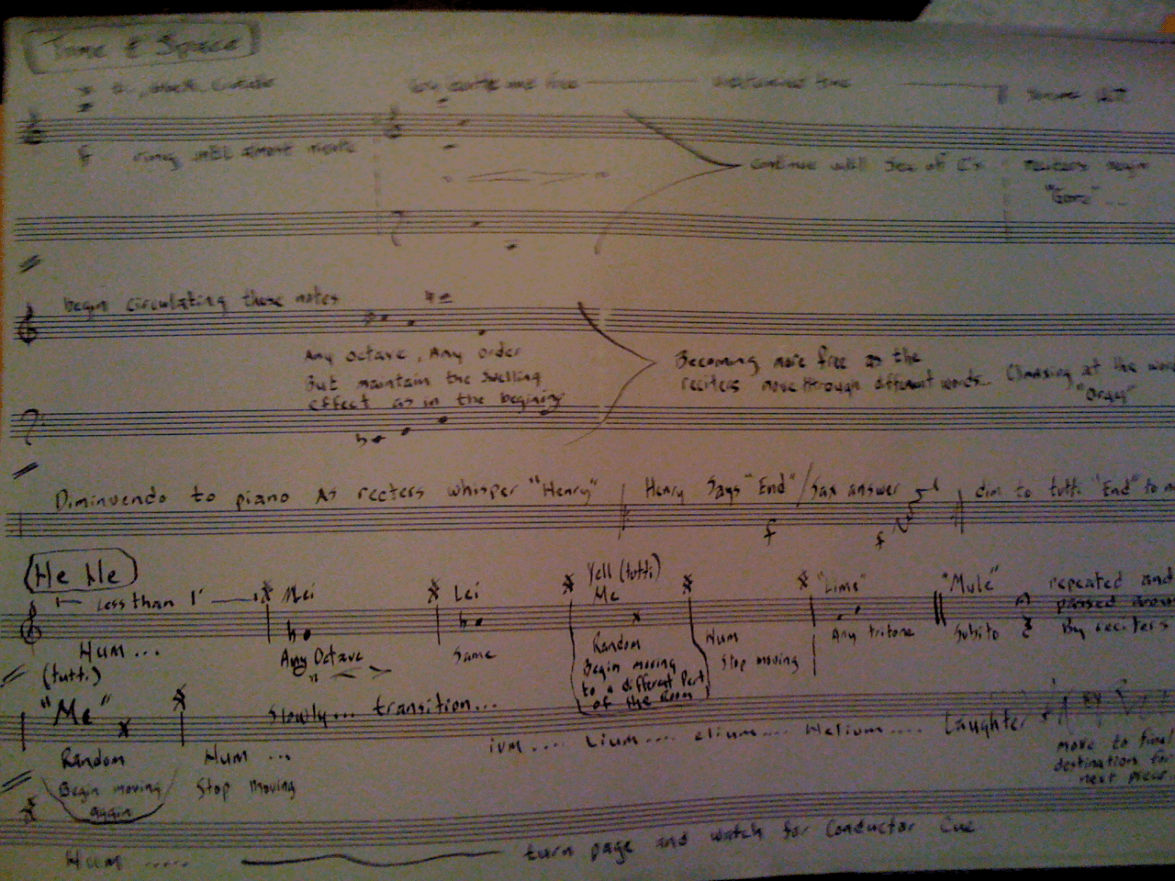 Time & Space
ring until almost niente
continue until Sea of C's
reciters begin
begin circulating these notes
Any octave, Any order
But maintain the swelling
effect as in the begining
Becoming more free as the
reciters move through different words. Climaxing at the
"Orgy"
Diminuendo to piano As recters whisper "Henry"
Henry Says "End" / Sax answer
dim to tutti "End" to
f
f
He He
less than 1'
Mei
Lei
Yell (tutti)
Me
"Lime"
"Mule"
repeated and
passed around
By reciters
Hum ...
Any Octave
Same
Random
Begin moving
to a different Part
of the Room
Hum
Stop moving
Any tritone
Subito
(tutti)
"Me"
Slowly... transition...
Random
Hum ...
ium .... Lium .... elium .... Helium ....
Laughter
Begin moving
again
Stop moving
move to final
destination for
next piece
Hum .....
turn page and watch for Conductor Cue